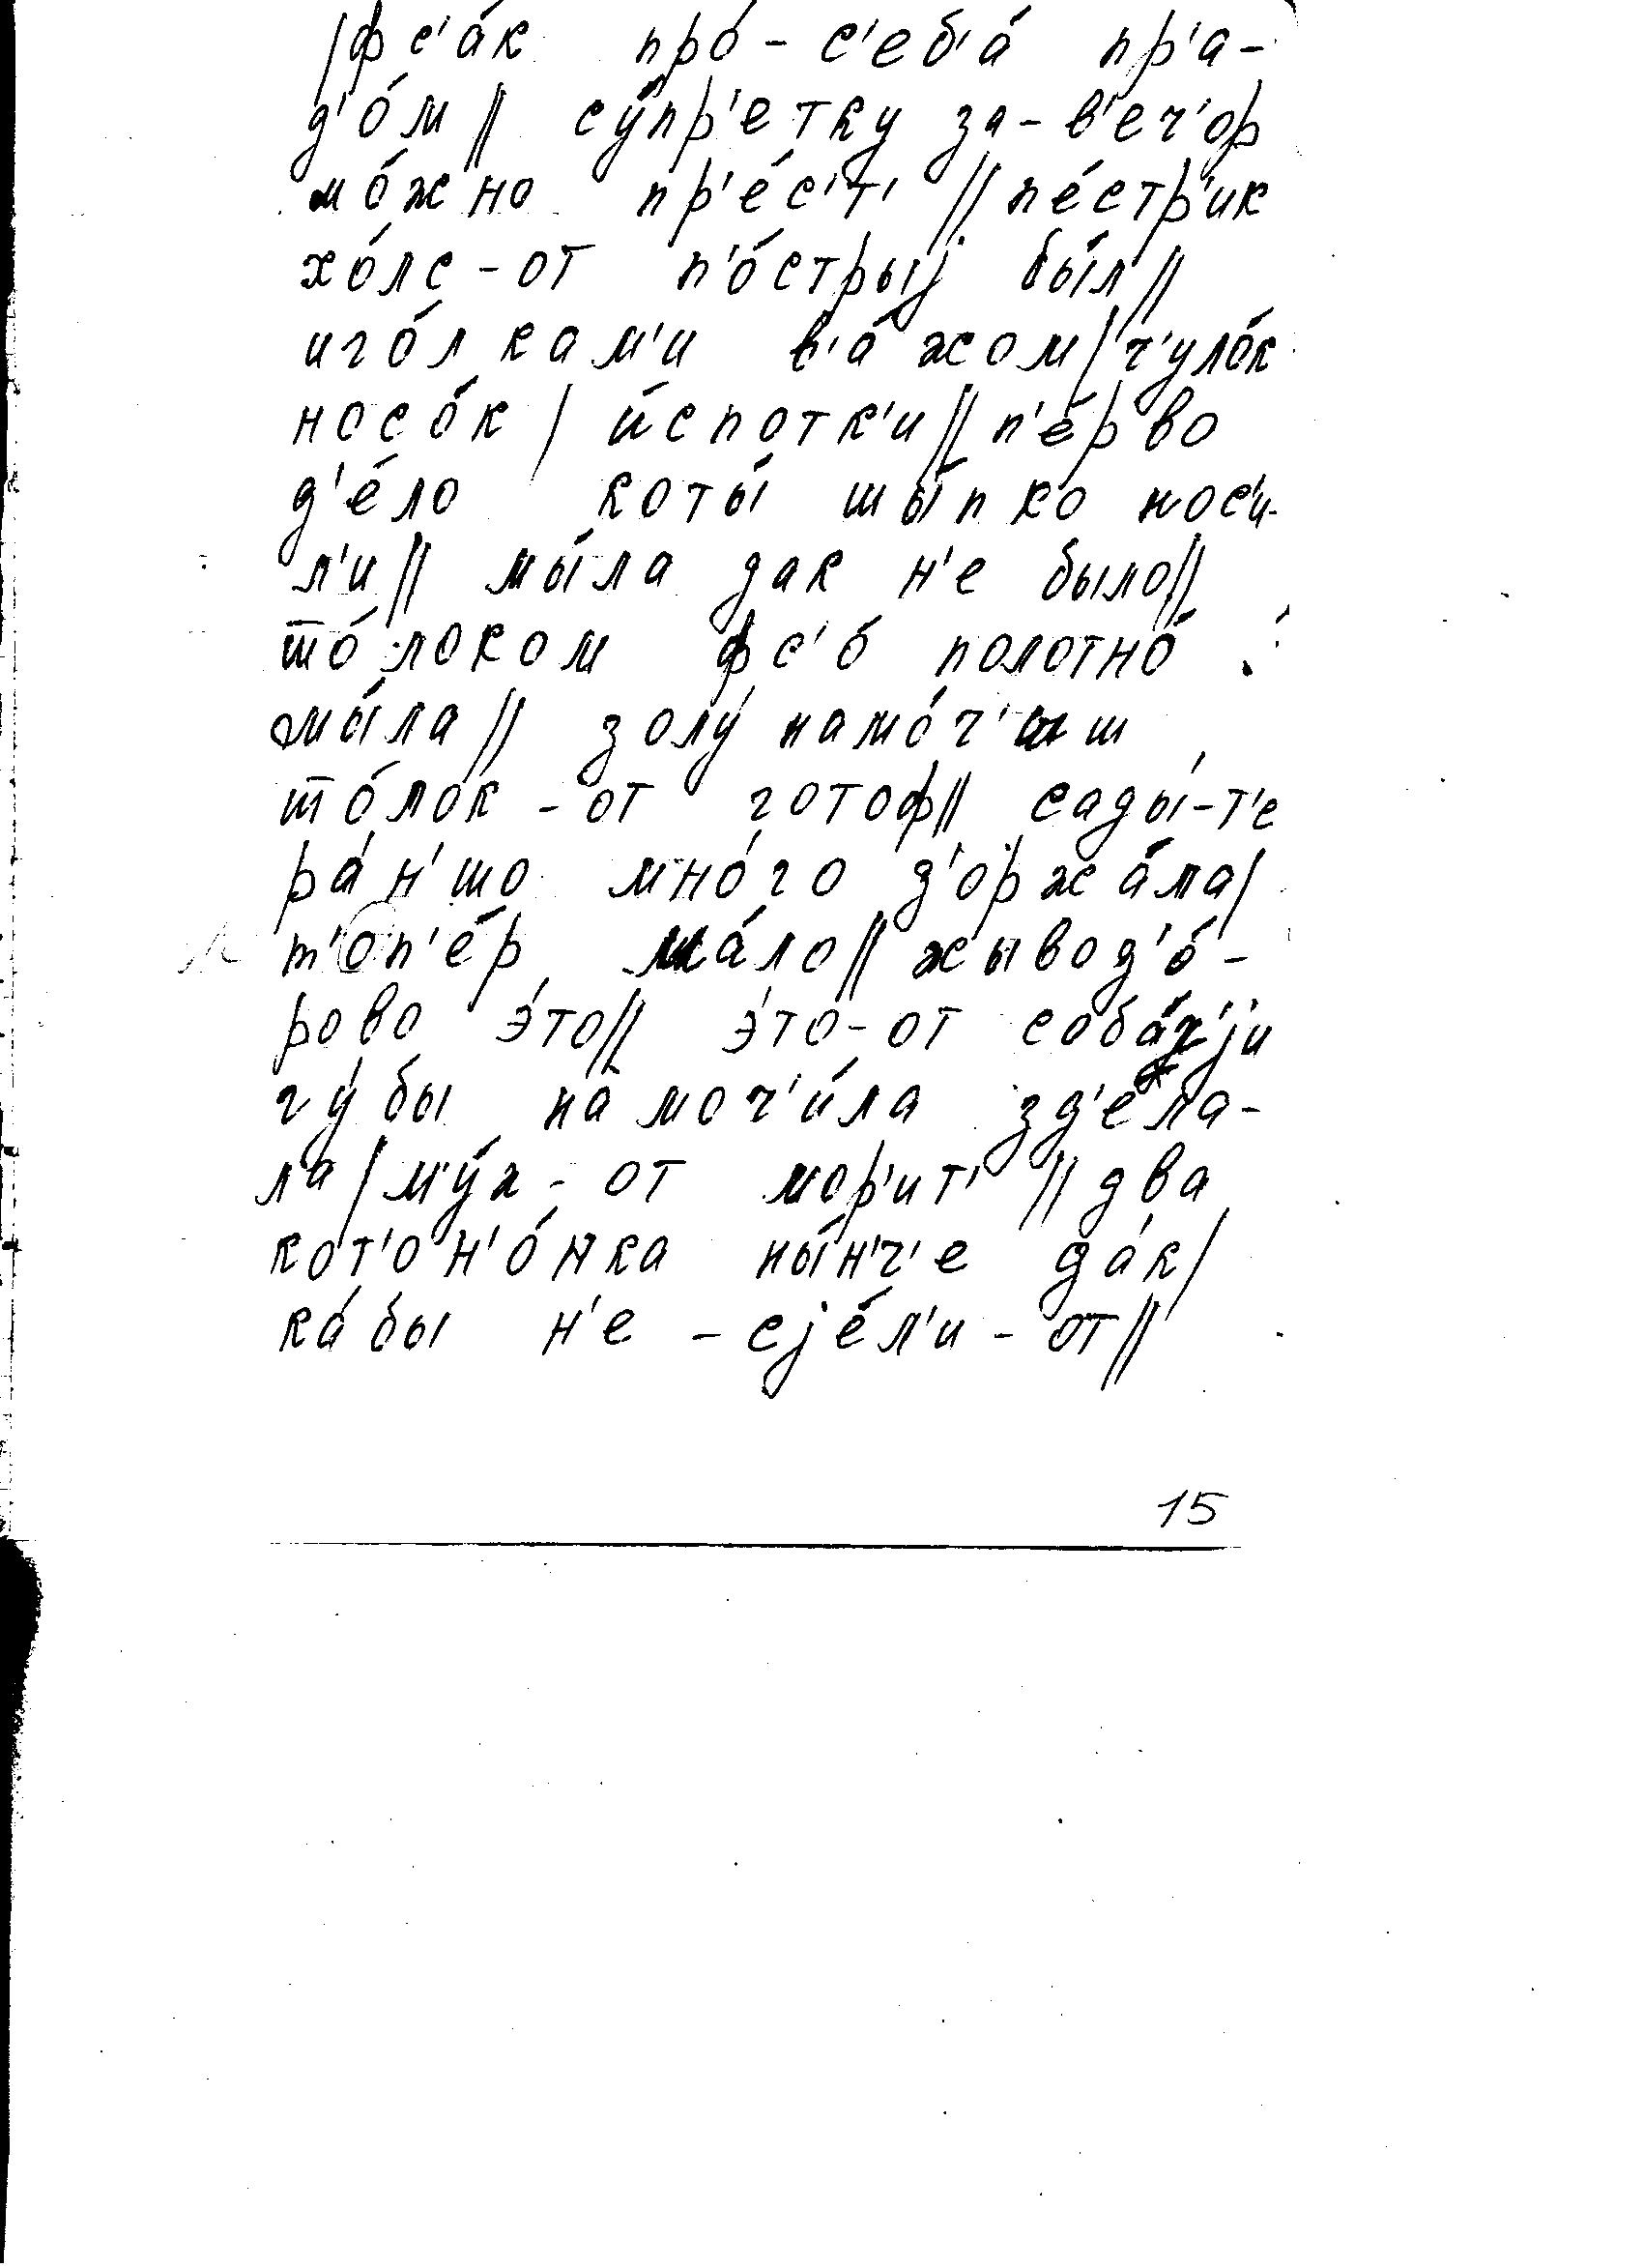 /фс'а́к про́-с'еб'а́ пр'а-
д'о́м// су́пр'етку за-в'еч'ор
мо́жно пр'е́с'т' // пе́стр'ик
хо́лс-от п'о́стрыj бы́л//
иго́лкам'и в'а́жом/ч'уло́к
носо́к/ и́спотк'и//п'е́рво
д'е́ло коты́ шы́пко нос'и-
л'и// мы́ла дак н'е было//
што́локом фс'о́ полотно́
мы́ла// золу́ намо́ч'иш
што́ло́к-от готоф// сады́-т'е
ра́н'шо мно́го д'оржа́ла/
т'оп'е́р ма́ло// жывод'о́-
рово э́то// э́то́-от соба́ч'jи
гу́бы намоч'и́ла зд'е́ла-
ла/му́х-от мор'ит' // два
кот'он'о́нка ны́н'ч'е да́к/
ка́бы н'е -сjе́л'и-от//
15